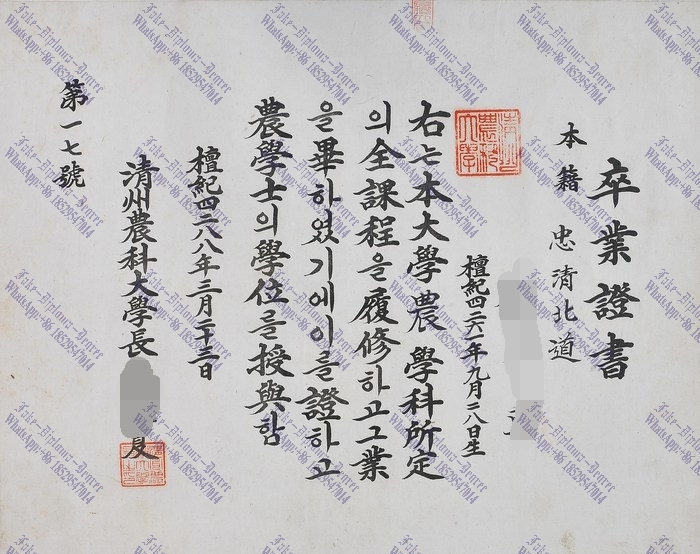 卒業證書
本籍 忠清北道
檀紀四二六一年九月二八日生
右는本大學農學科所定
의全課程을履修하고그業
을畢하였기에이를證하고
農學士의學位를授與함
檀紀四二八八年三月二十三日
清州農科大學長
第一七號
Fake-Diploma-Degree
WhatsApp:+86 18529547014